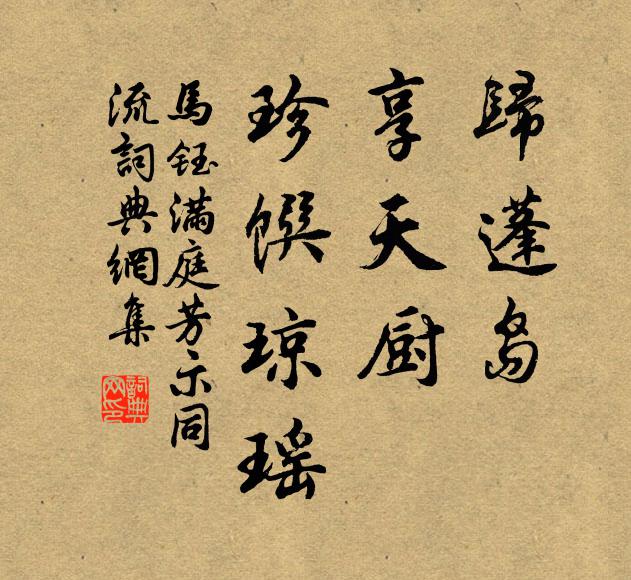 歸蓬島
享天厨
珍饌琼瑶
馬鈺滿庭芳示同
流詞典網集
詞典
网印